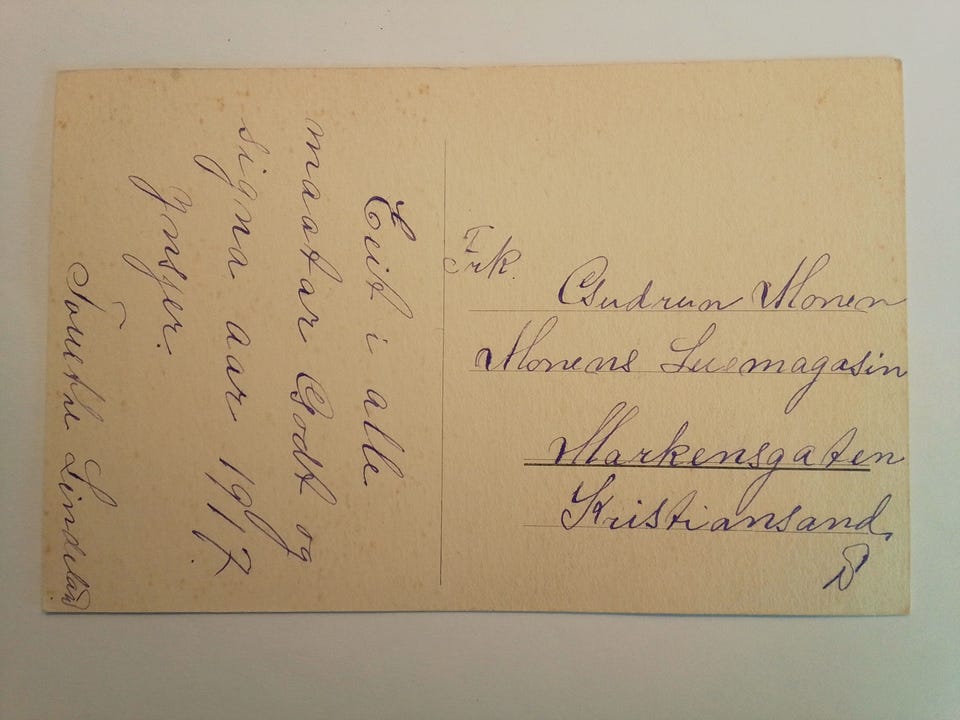 Eit i alle
maatar Godt og
signa aar 1917
ynsjer.
Lindeland
Frk.
Gudrun Monen
Monens Luemagasin
Markensgaten
Kristiansand
S